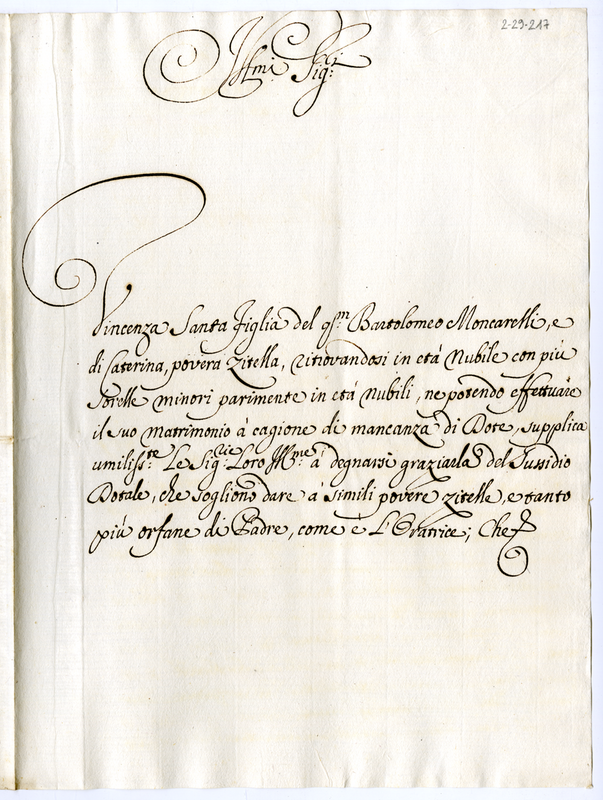 2-29-217
Ill.mi Sig.ri
Vincenza Santa figlia del q.m Bartolomeo Moncarelli, e
di Caterina, povera Zitella, ritrovandosi in età Nubile con più
Sorelle minori parimente in età Nubili, ne potendo effettuare
il suo Matrimonio à cagione di mancanza di Dote, supplica
umiliss.te Le Sig.rie Loro Ill.me à degnarsi graziarla del Sussidio
Dotale, che sogliono dare à simili povere Zitelle, e tanto
più orfane di Padre, come è L'Oratrice; Che